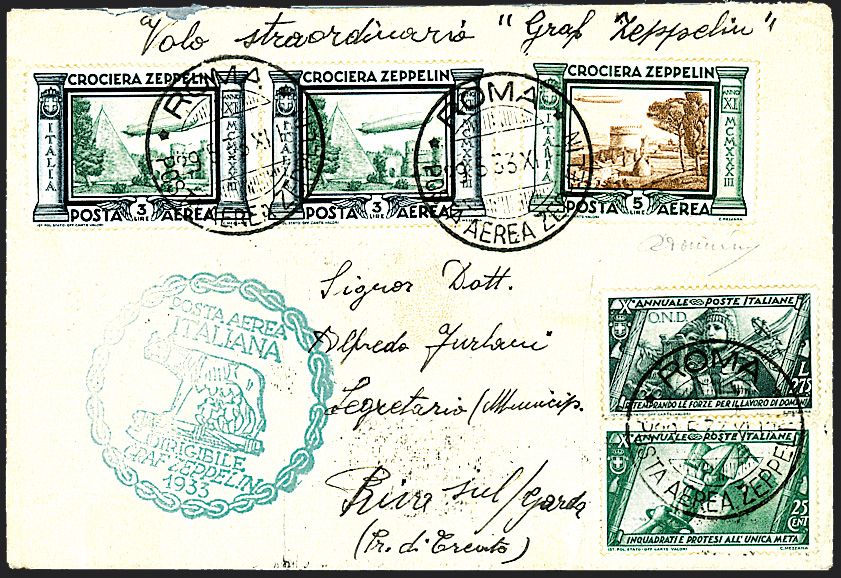 Volo straordinario "Graf Zeppelin"
CROCIERA ZEPPELIN
ITALIA
ANNO XI MCMXXXIII
POSTA 3 LIRE AEREA
IST. POL. STATO - OFF. CARTE VALORI
CROCIERA ZEPPELIN
ITALIA
ANNO XI MCMXXXIII
POSTA 3 LIRE AEREA
IST. POL. STATO - OFF. CARTE VALORI
CROCIERA ZEPPELIN
ITALIA
ANNO XI MCMXXXIII
POSTA 5 LIRE AEREA
C. MEZZANA
ROMA
29.5.33.XI
POSTA AEREA ZEPPELIN
ROMA
29.5.33.XI
POSTA AEREA ZEPPELIN
POSTA AEREA
ITALIANA
DIRIGIBILE
GRAF ZEPPELIN
1933
Signor Dott.
Alfredo Furlani
Segretario Municip.
Riva sul Garda
(Pr. di Trento)
X° ANNUALE POSTE ITALIANE
O.N.D.
L. 1,75
RITEMPRANDO LE FORZE PER IL LAVORO DI DOMANI
ROMA
POSTA AEREA ZEPPELIN
X° ANNUALE POSTE ITALIANE
25 CENT
INQUADRATI E PROTESI ALL'UNICA META
IST. POL. STATO - OFF. CARTE VALORI
C. MEZZANA